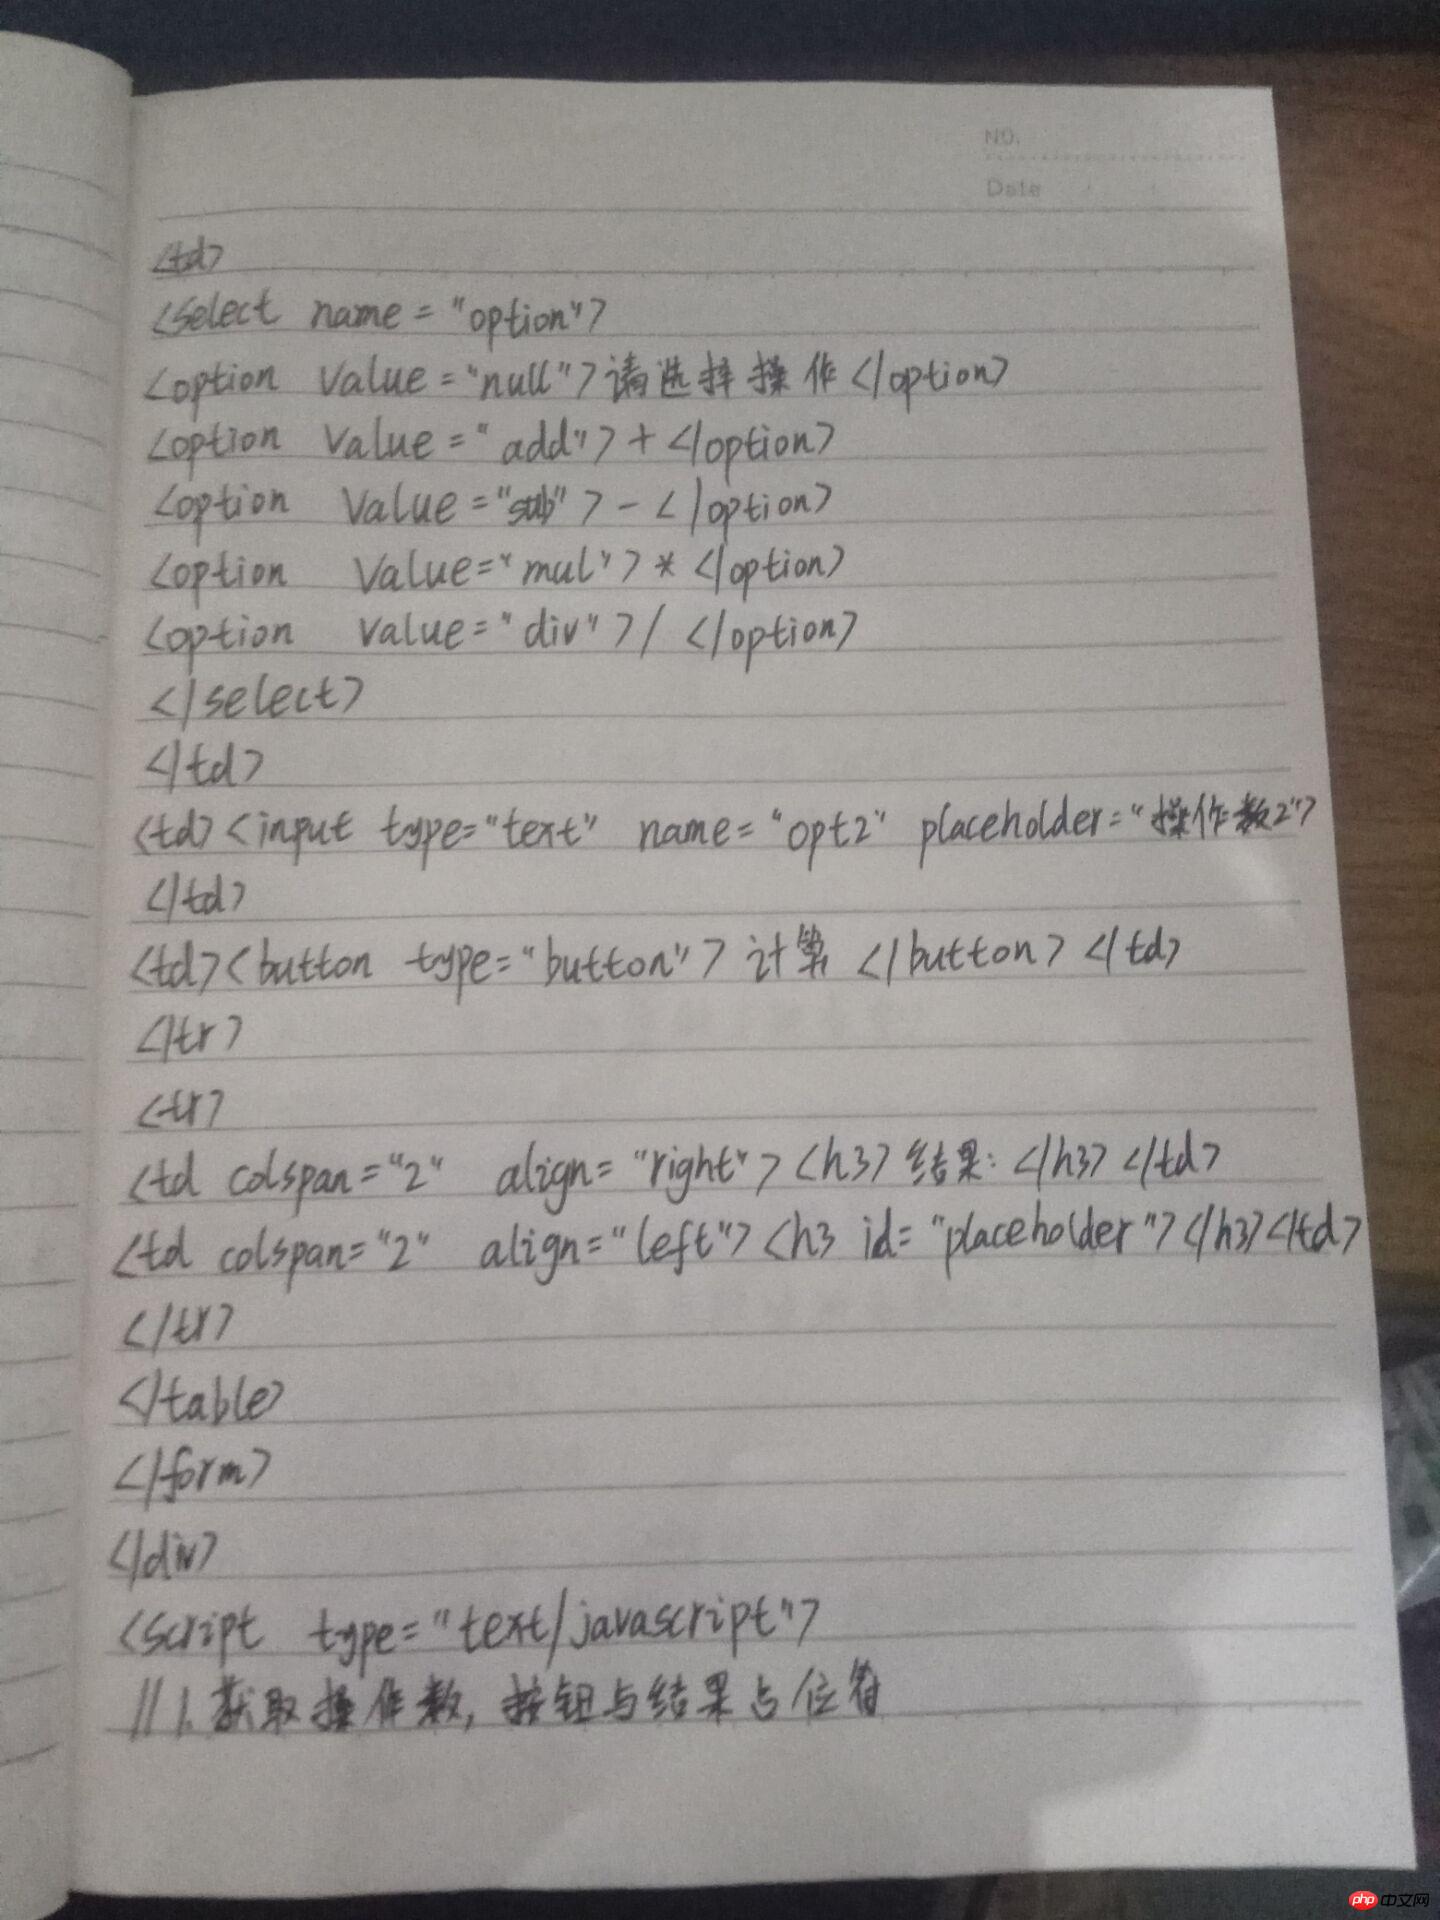 NO.
Date
<td>
<select name="option">
<option value="null">请选择操作</option>
<option value="add">+</option>
<option value="sub">-</option>
<option value="mul">*</option>
<option value="div">/</option>
</select>
</td>
<td><input type="text" name="opt2" placeholder="操作数2">
</td>
<td><button type="button">计算</button></td>
</tr>
<tr>
<td colspan="2" align="right"><h3>结果:</h3></td>
<td colspan="2" align="left"><h3 id="placeholder"></h3></td>
</tr>
</table>
</form>
</div>
<script type="text/javascript">
//1.获取操作数,按钮与结果占位符
php中文网